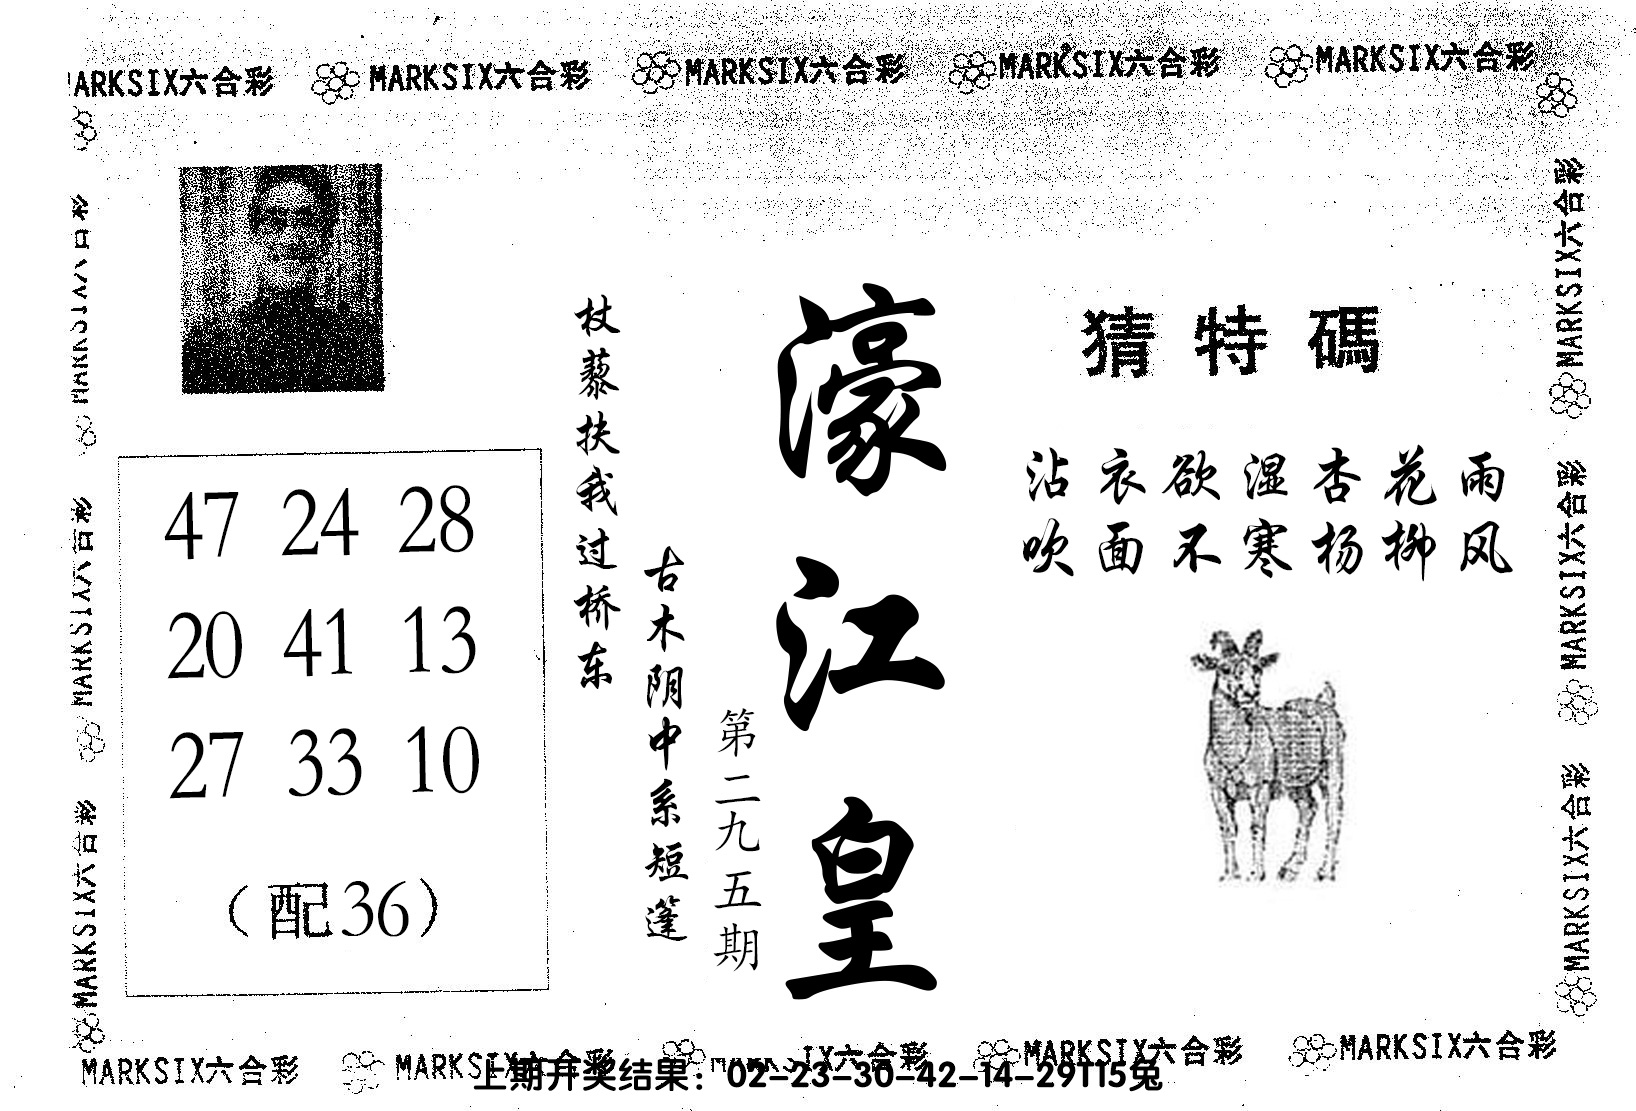 MARKSIX六合彩 MARKSIX六合彩 MARKSIX六合彩 MARKSIX六合彩
猜特碼
沾衣欲湿杏花雨
吹面不寒杨柳风
濠江皇
第二九五期
古木阴中系短篷
杖藜扶我过桥东
47 24 28
20 41 13
27 33 10
（配36）
MARKSIX六合彩
MARKSIX六合彩
MARKSIX六合彩
MARKSIX六合彩
MARKSIX六合彩
MARKSIX六合彩 MARKSIX六合彩 MARKSIX六合彩 MARKSIX六合彩
上期开奖结果：02-23-30-42-14-29T15兔